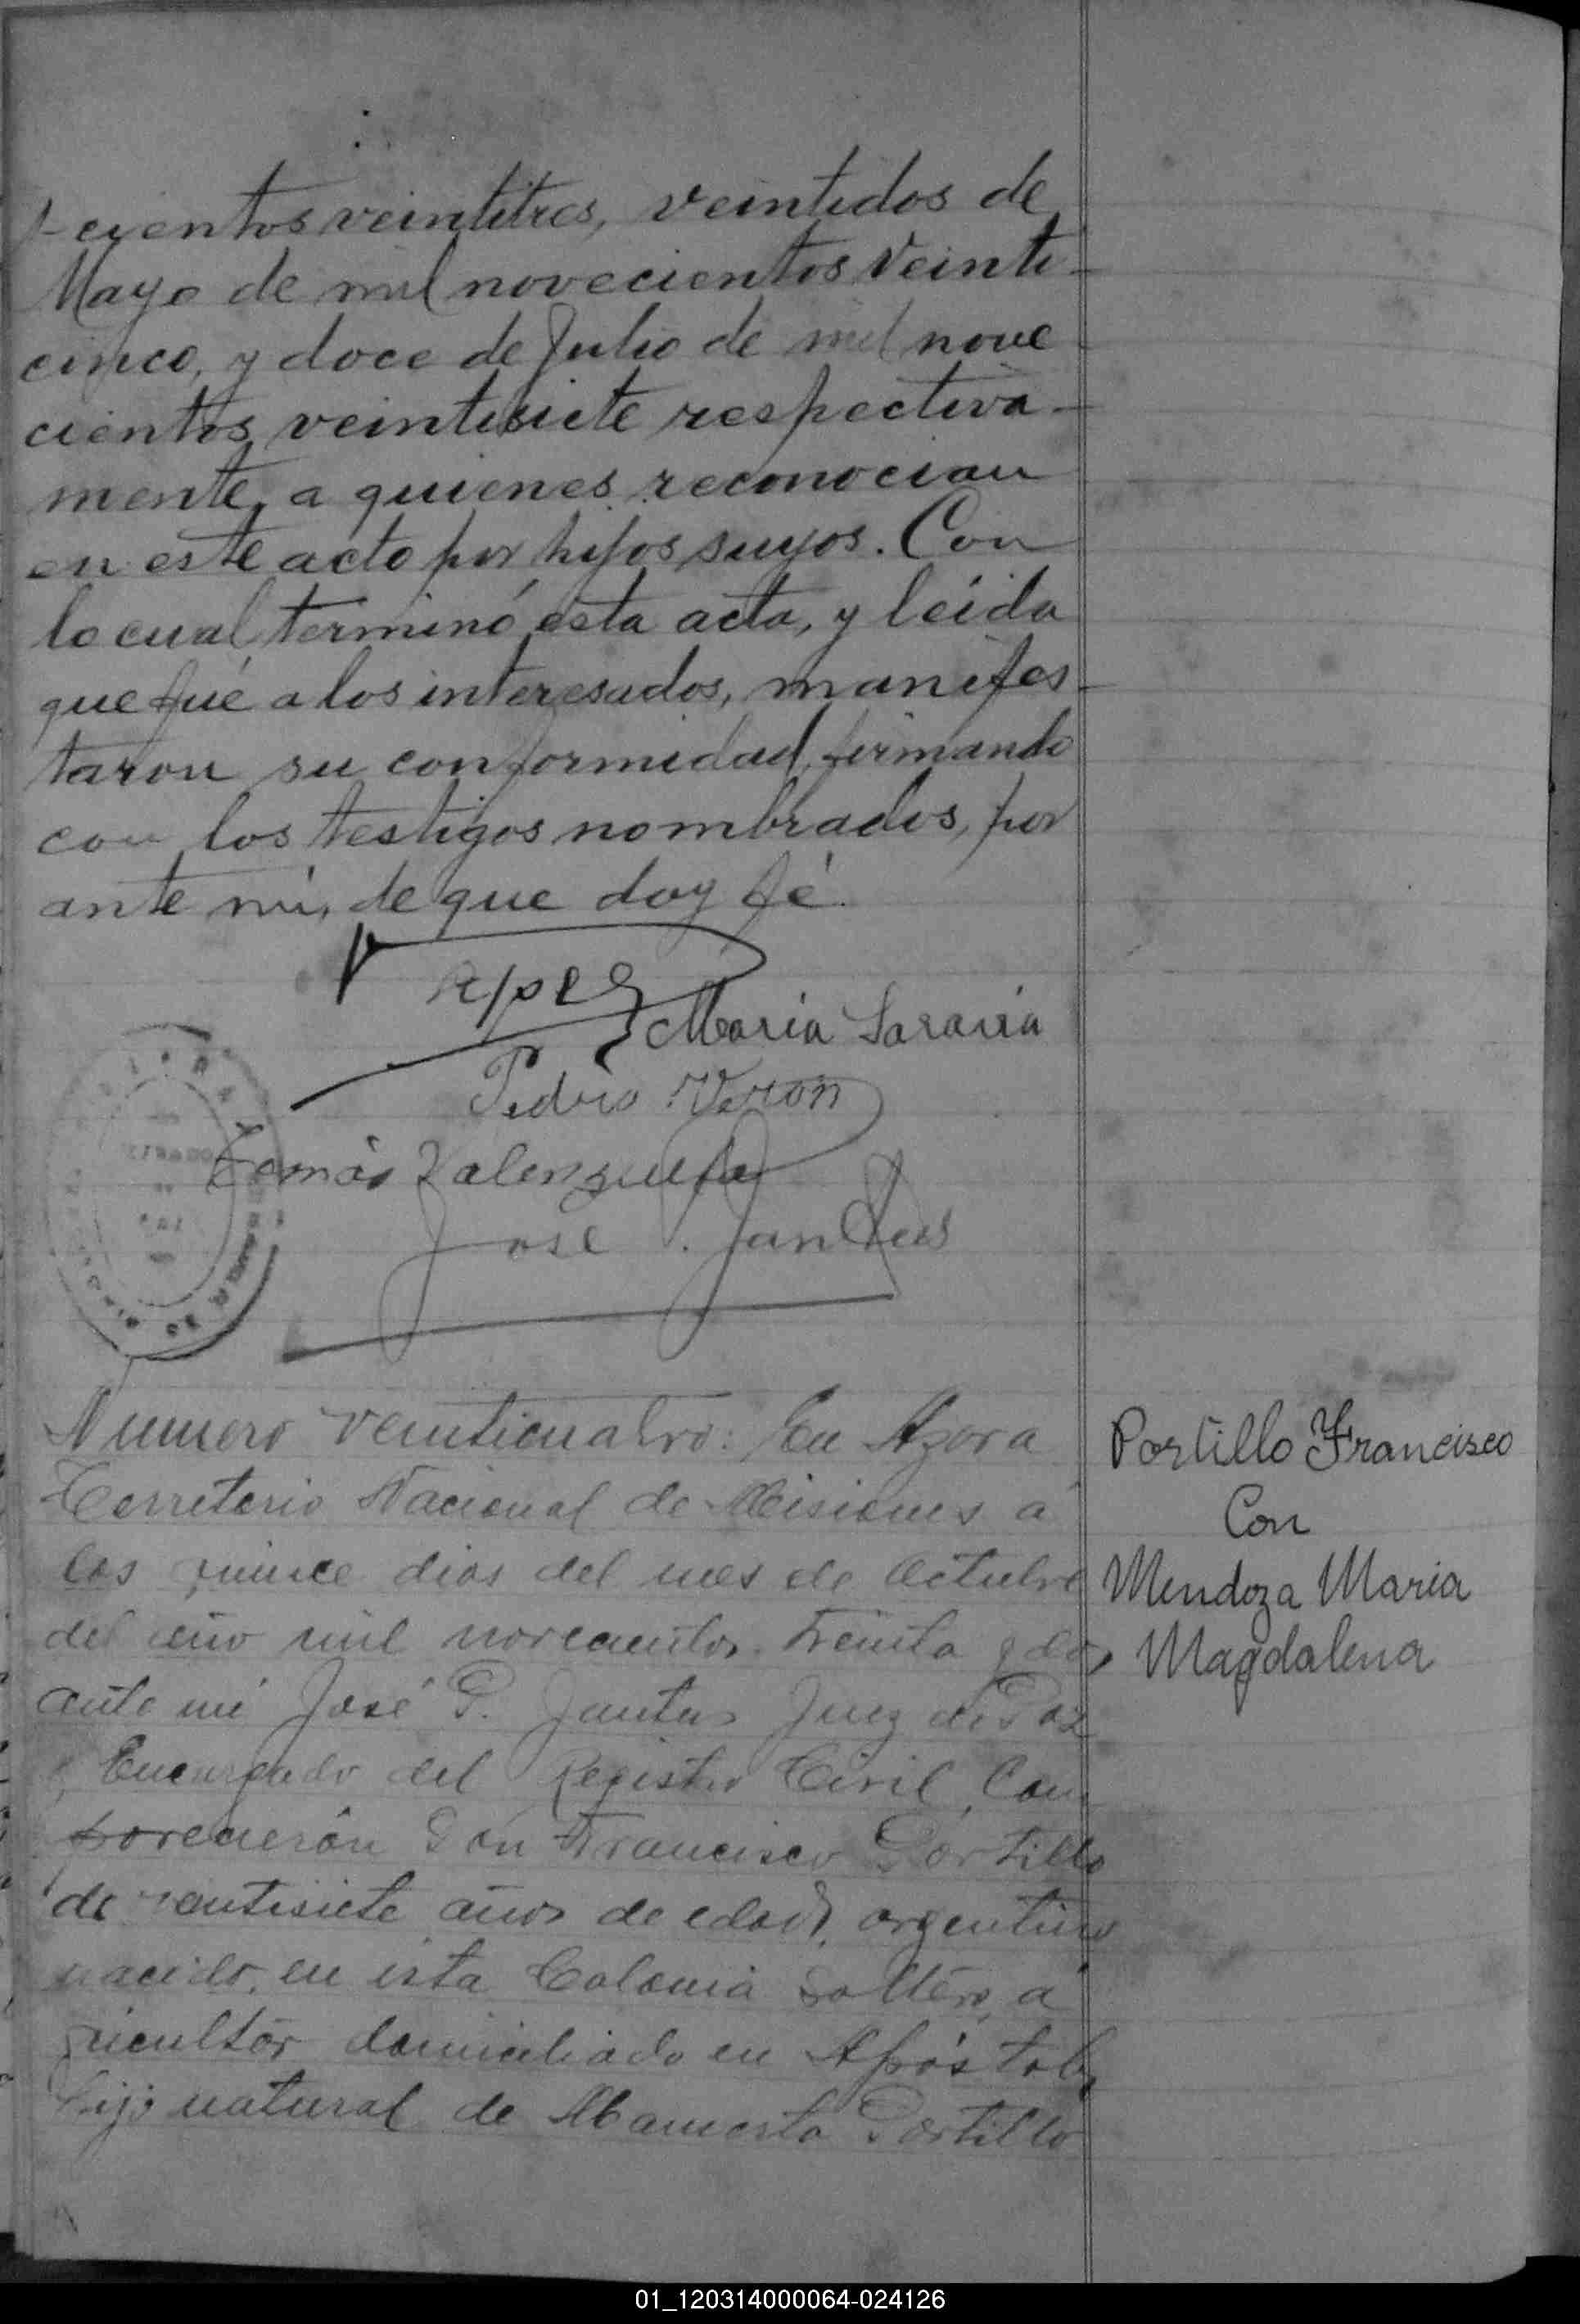 cientos veintitres, veintidos de
Mayo de mil novecientos veinti-
cinco, y doce de Julio de mil nove
cientos veintisiete respectiva-
mente, a quienes reconocian
en este acto por hijos suyos. Con
lo cual terminó esta acta, y leída
que fué a los interesados, manifes-
taron su conformidad, firmando
con los testigos nombrados, por
ante mi, de que doy fé.
Maria Saravia
Pedro Veron
Tomás Valenzuela
José
Numero veinticuatro: En Azara
Territorio Nacional de Misiones á
los quince dias del mes de Octubre
del año mil novecientos treinta y dos
ante mi José P. Juez de Paz
y Encargado del Registro Civil, Com
parecierón Don Francisco Portillo
de ventisiete años de edad, argentino
nacido, en esta Colonia soltero, a
gricultor domiciliado en Apóstoles
hijo natural de Portillo
Portillo Francisco
Con
Mendoza Maria
Magdalena
01_120314000064-024126